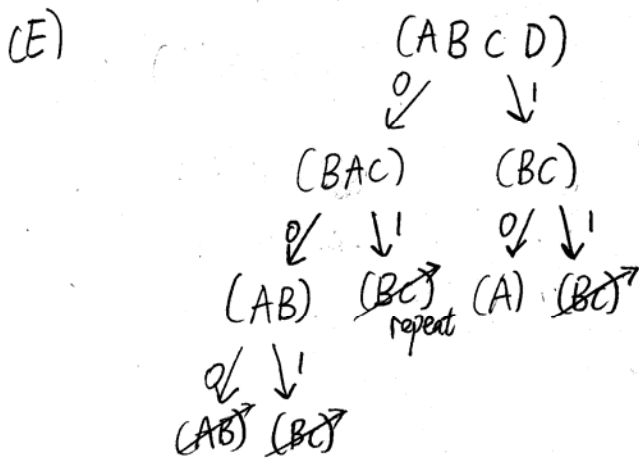 (E) (A B C D)
0 1
(BAC) (BC)
0 1 0 1
(AB) (BC) (A) (BC)
repeat
0 1
(AB) (BC)